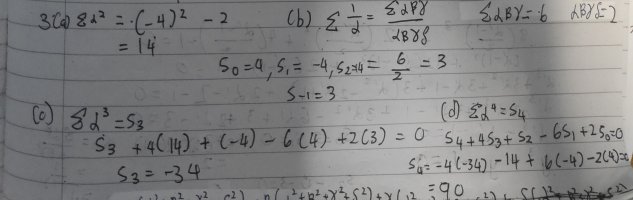 3(a) Σα² = (-4)² - 2
= 14
(b) Σ 1/α = Σαβγ / αβγδ Σαβγ = 6 αβγδ = 2
S₀ = 4, S₁ = -4, S₂ = 14 = 6/2 = 3
S₋₁ = 3
(c) Σα³ = S₃
S₃ + 4(14) + (-4) - 6(4) + 2(3) = 0
S₃ = -34
(d) Σα⁴ = S₄
S₄ + 4S₃ + S₂ - 6S₁ + 2S₀ = 0
S₄ = -4(-34) - 14 + 6(-4) - 2(4) = 0
= 90